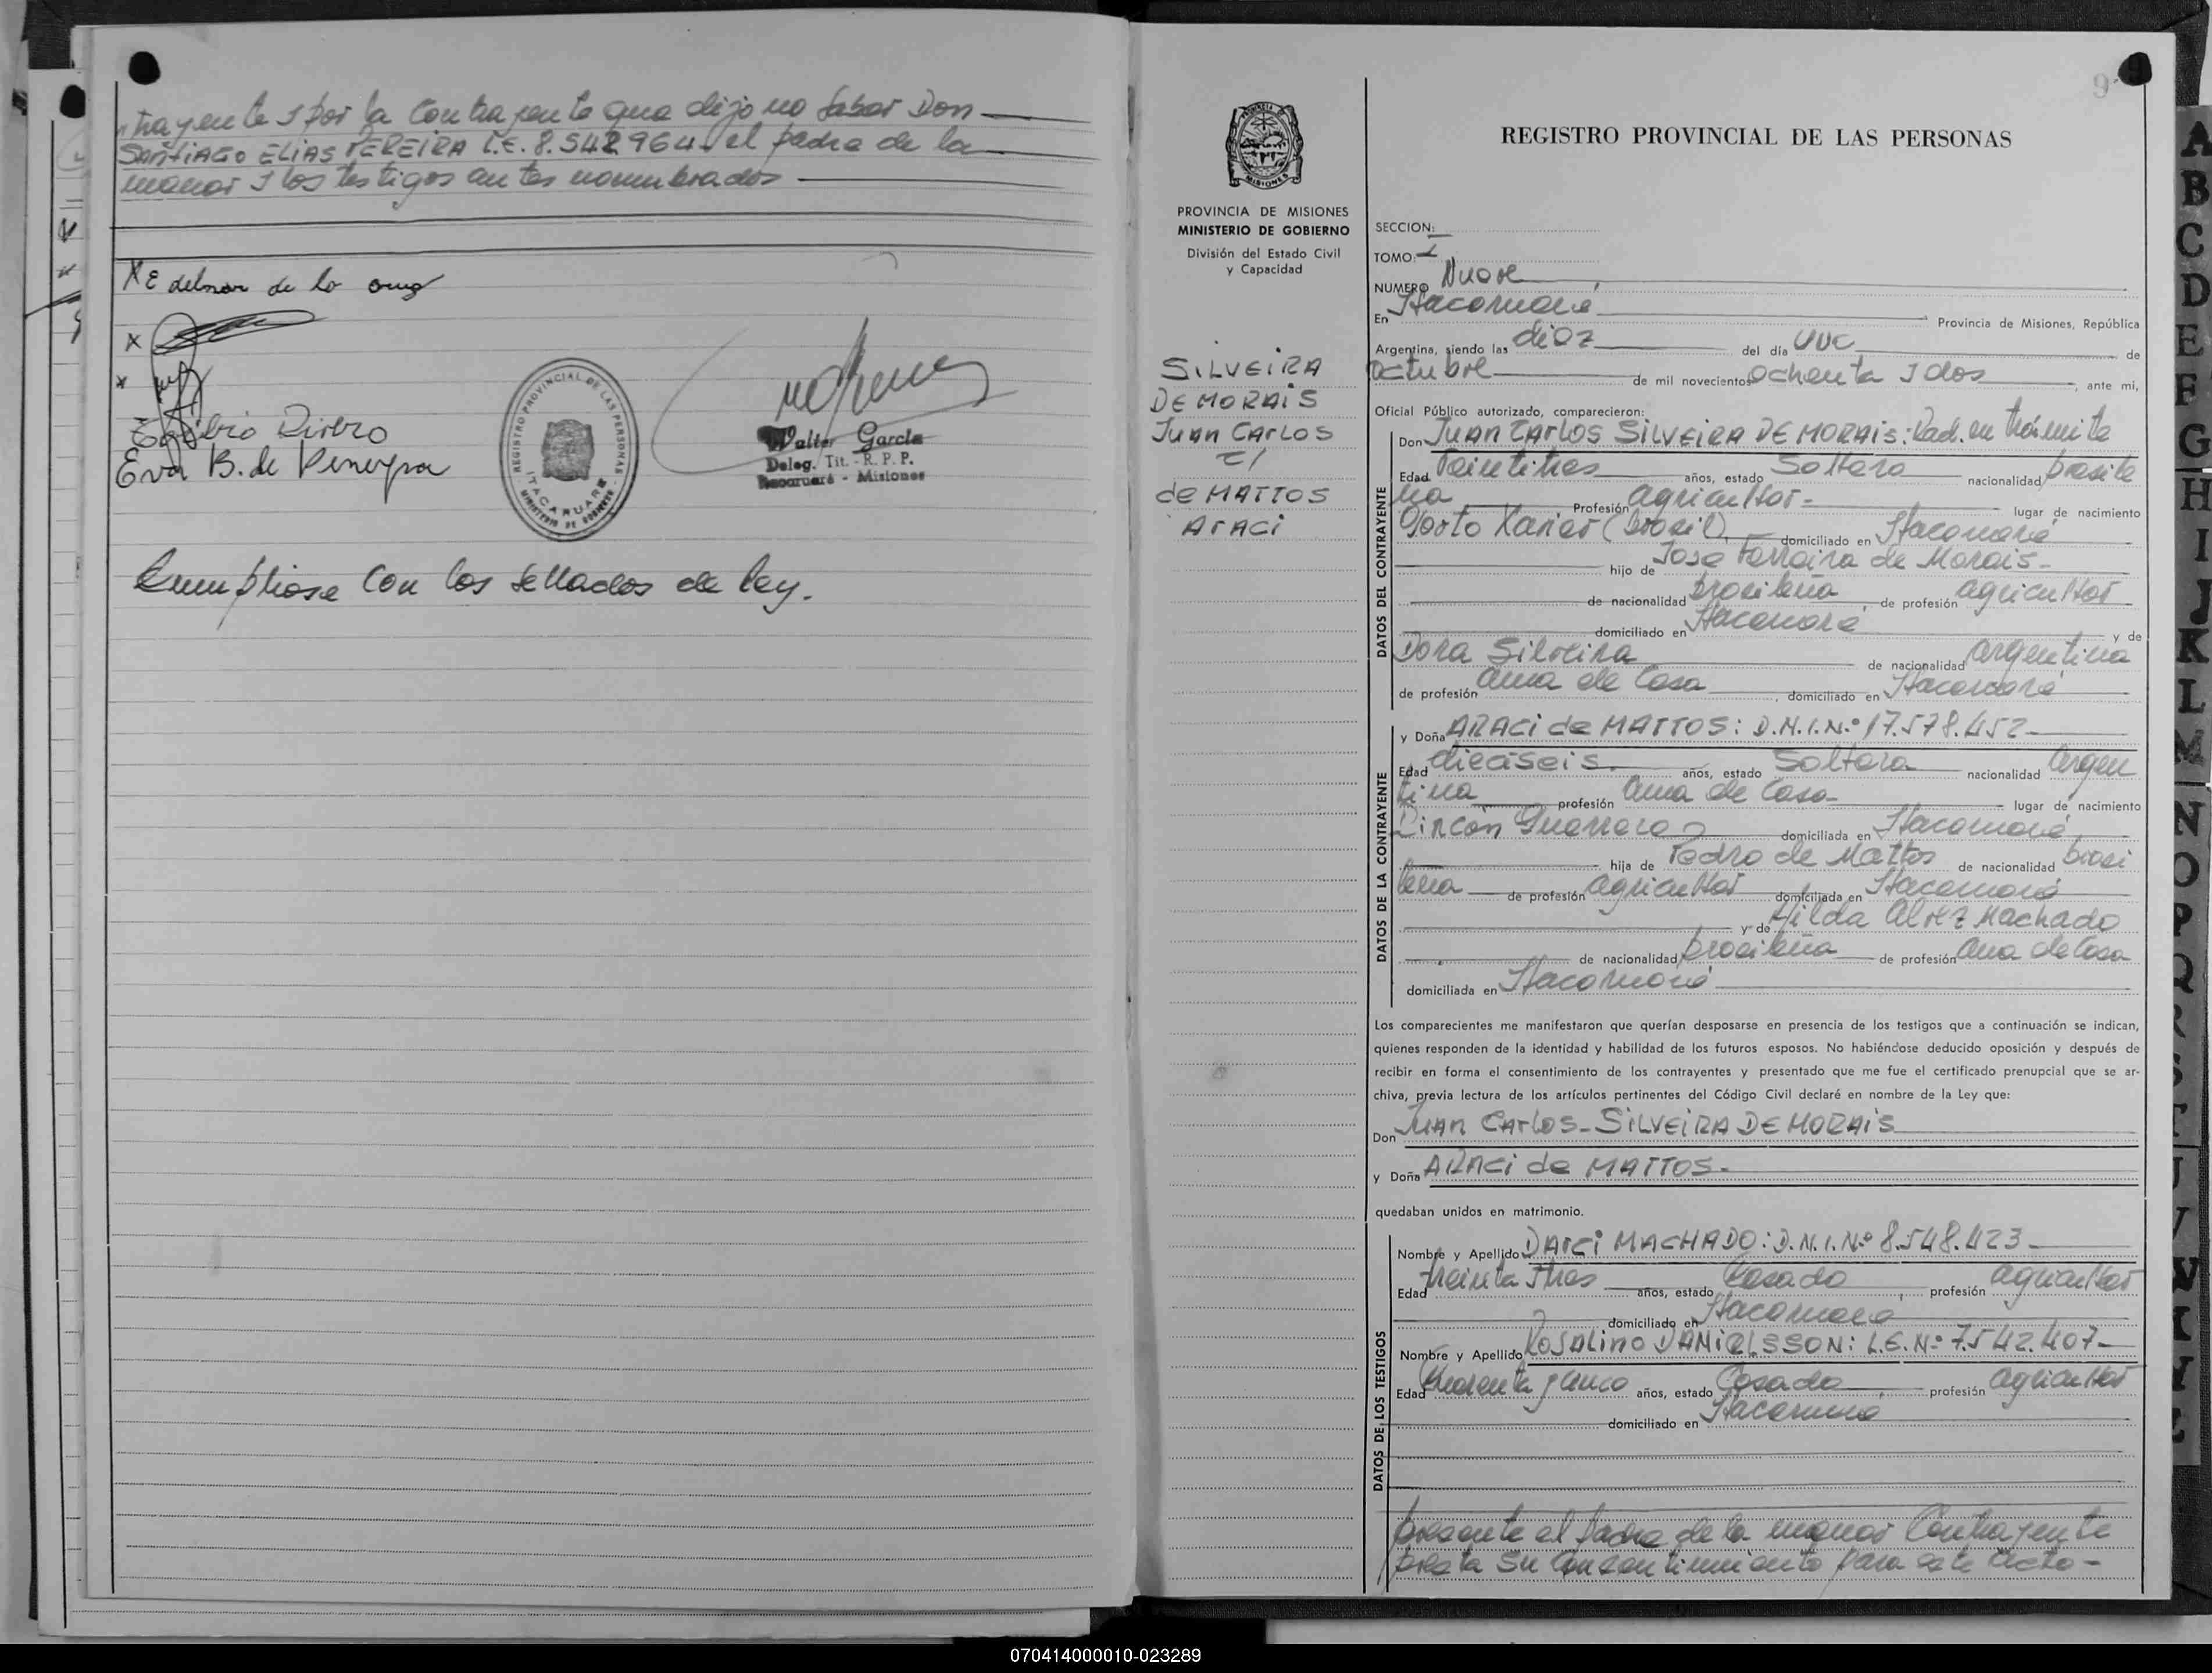 trayente y por la Contrayente que dijo no saber Don
SANTIAGO ELIAS PEREIRA L.E. 8.542.964. el padre de la
menor y los testigos antes nombrados
X Edelmar de la cruz
X
X
Rivero
Eva B. de Pereyra
REGISTRO PROVINCIAL DE LAS PERSONAS
ITACARUARE
MINISTERIO DE GOBIERNO
Walter García
Deleg. Tit. - R. P. P.
Itacaruaré - Misiones
Cumpliose Con los sellados de ley.
9
MISIONES
PROVINCIA DE MISIONES
MINISTERIO DE GOBIERNO
División del Estado Civil
y Capacidad
SILVEIRA
DE MORAIS
Juan Carlos
c/
de MATTOS
Araci
REGISTRO PROVINCIAL DE LAS PERSONAS
SECCION:
TOMO: I
NUMERO Nueve
En Itacaruaré Provincia de Misiones, República
Argentina, siendo las diez del día uno de
octubre de mil novecientos ochenta y dos, ante mi,
Oficial Público autorizado, comparecieron:
DATOS DEL CONTRAYENTE
Don JUAN CARLOS SILVEIRA DE MORAIS: Rad. en trámite
Edad Veintitres años, estado Soltero nacionalidad brasile
ña Profesión agricultor- lugar de nacimiento
Porto Xavier (Brasil) domiciliado en Itacaruaré
hijo de José Ferreira de Morais-
de nacionalidad brasileña, de profesión agricultor
domiciliado en Itacaruaré y de
Dora Silveira de nacionalidad argentina
de profesión ama de Casa, domiciliado en Itacaruaré
DATOS DE LA CONTRAYENTE
y Doña ARACI de MATTOS: D.N.I.N.º 17.578.452
Edad dieciseis. años, estado Soltera nacionalidad argen
tina profesión ama de Casa- lugar de nacimiento
Rincón Guerrero domiciliada en Itacaruaré,
hija de Pedro de Mattos de nacionalidad brasi
leña de profesión agricultor domiciliada en Itacaruaré
y de Hilda Alvez Machado
de nacionalidad brasileña de profesión ama de Casa
domiciliada en Itacaruaré
Los comparecientes me manifestaron que querían desposarse en presencia de los testigos que a continuación se indican,
quienes responden de la identidad y habilidad de los futuros esposos. No habiéndose deducido oposición y después de
recibir en forma el consentimiento de los contrayentes y presentado que me fue el certificado prenupcial que se ar-
chiva, previa lectura de los artículos pertinentes del Código Civil declaré en nombre de la Ley que:
Don Juan Carlos-SILVEIRA DE MORAIS
y Doña ARACI de MATTOS-
quedaban unidos en matrimonio.
DATOS DE LOS TESTIGOS
Nombre y Apellido DARCI MACHADO: D.N.I.Nº 8.548.423
Edad treinta y tres años, estado Casado, profesión agricultor
domiciliado en Itacaruaré
Nombre y Apellido ROSALINO DANIELSSON: L.E.Nº 7.542.407-
Edad Cuarenta y cinco años, estado Casado, profesión agricultor
domiciliado en Itacaruaré
presente el padre de la menor Contrayente
presta su Consentimiento para este acto-
A
B
C
D
E
F
G
H
I
J
K
L
M
N
O
P
Q
R
S
T
U
V
070414000010-023289